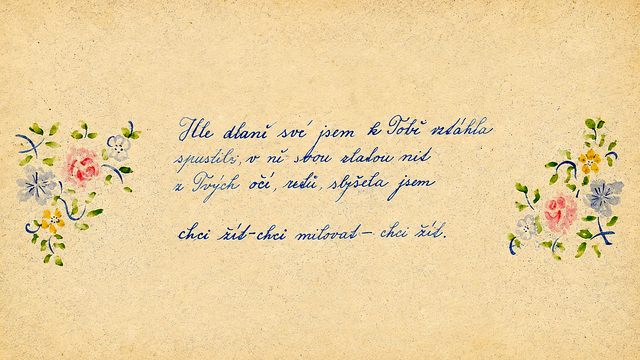 Hle dlaně své jsem k Tobě vztáhla
spustils, v ně svou zlatou nit
z Tvých očí, retů, slyšela jsem
chci žít-chci milovat - chci žít.